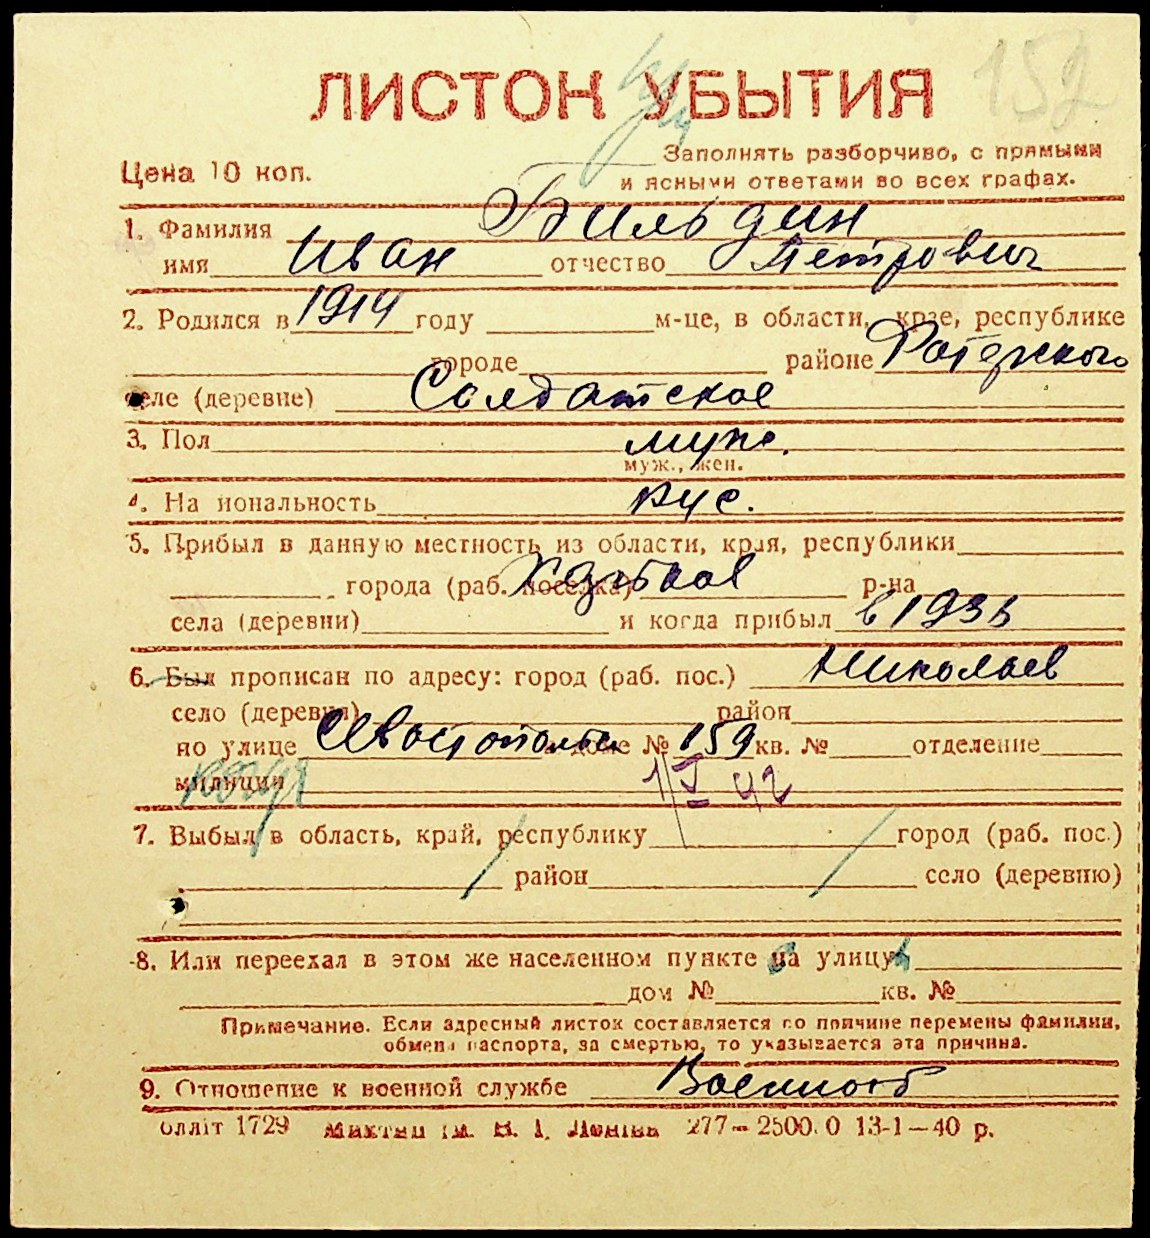 152
ЛИСТОК УБЫТИЯ
Заполнять разборчиво, с прямыми
Цена 10 коп.
и ясными ответами во всех графах.
1. Фамилия Бильдин
имя Иван отчество Петрович
2. Родился в 1914 году м-це, в области, крае, республике
городе районе Фатежского
селе (деревне) Солдатское
3. Пол муж.
муж., жен.
4. На иональность рус.
5. Прибыл в данную местность из области, края, республики
города (раб. поселка) Харьков р-на
села (деревни) и когда прибыл в 193
6. Был прописан по адресу: город (раб. пос.) Николаев
село (деревня) район
по улице Севастопольск доме № 159 кв. № отделение
милиции 1/I 42
7. Выбыл в область, край, республику город (раб. пос.)
район село (деревню)
8. Или переехал в этом же населенном пункте на улицу
дом № кв. №
Примечание. Если адресный листок составляется по причине перемены фамилии,
обмена паспорта, за смертью, то указывается эта причина.
9. Отношение к военной службе Военнооб
олліт 1729 277—2500.0 13-1—40 р.